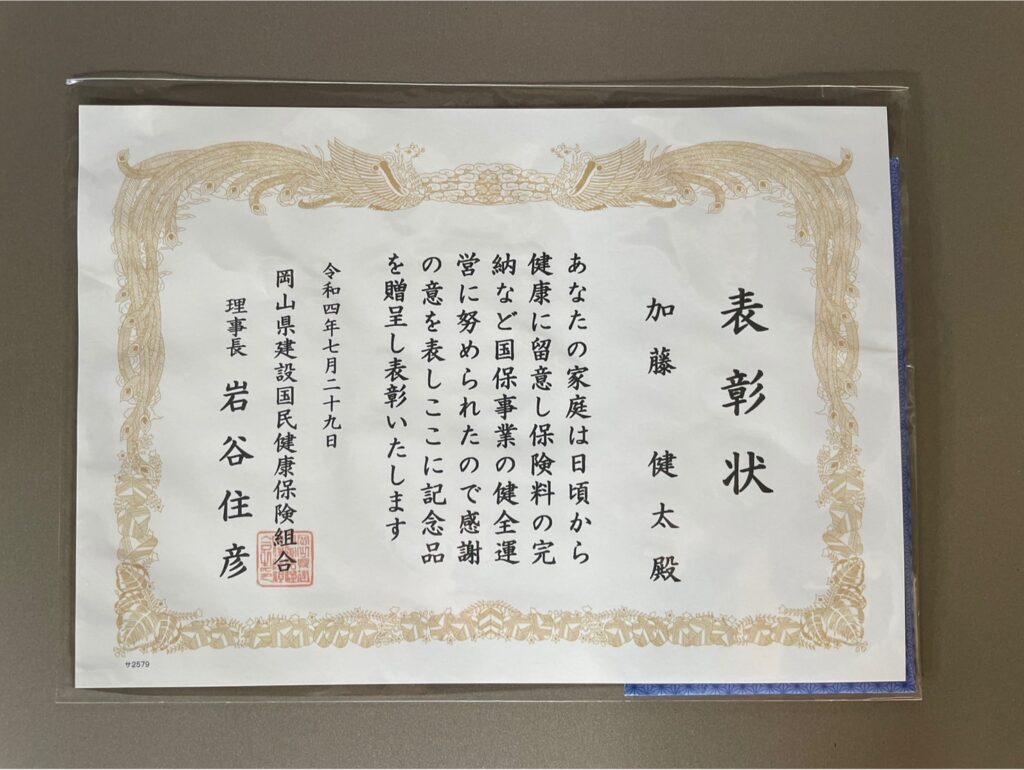 表彰状
加藤 健太 殿
あなたの家庭は日頃から
健康に留意し保険料の完
納など国保事業の健全運
営に努められたので感謝
の意を表しここに記念品
を贈呈し表彰いたします
令和四年七月二十九日
岡山県建設国民健康保険組合
理事長 岩谷住彦
サ2579